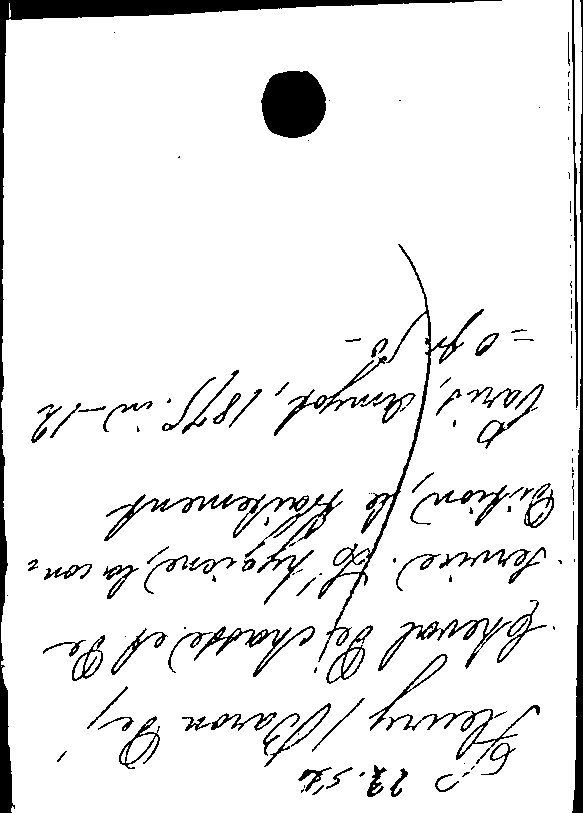 Fleury (Baron de)
Cheval de chasse et de
service. L'hygiène, la con-
dition, le traitement
Paris, Amyot, 1875. in-12
= 0 fr. 50 -